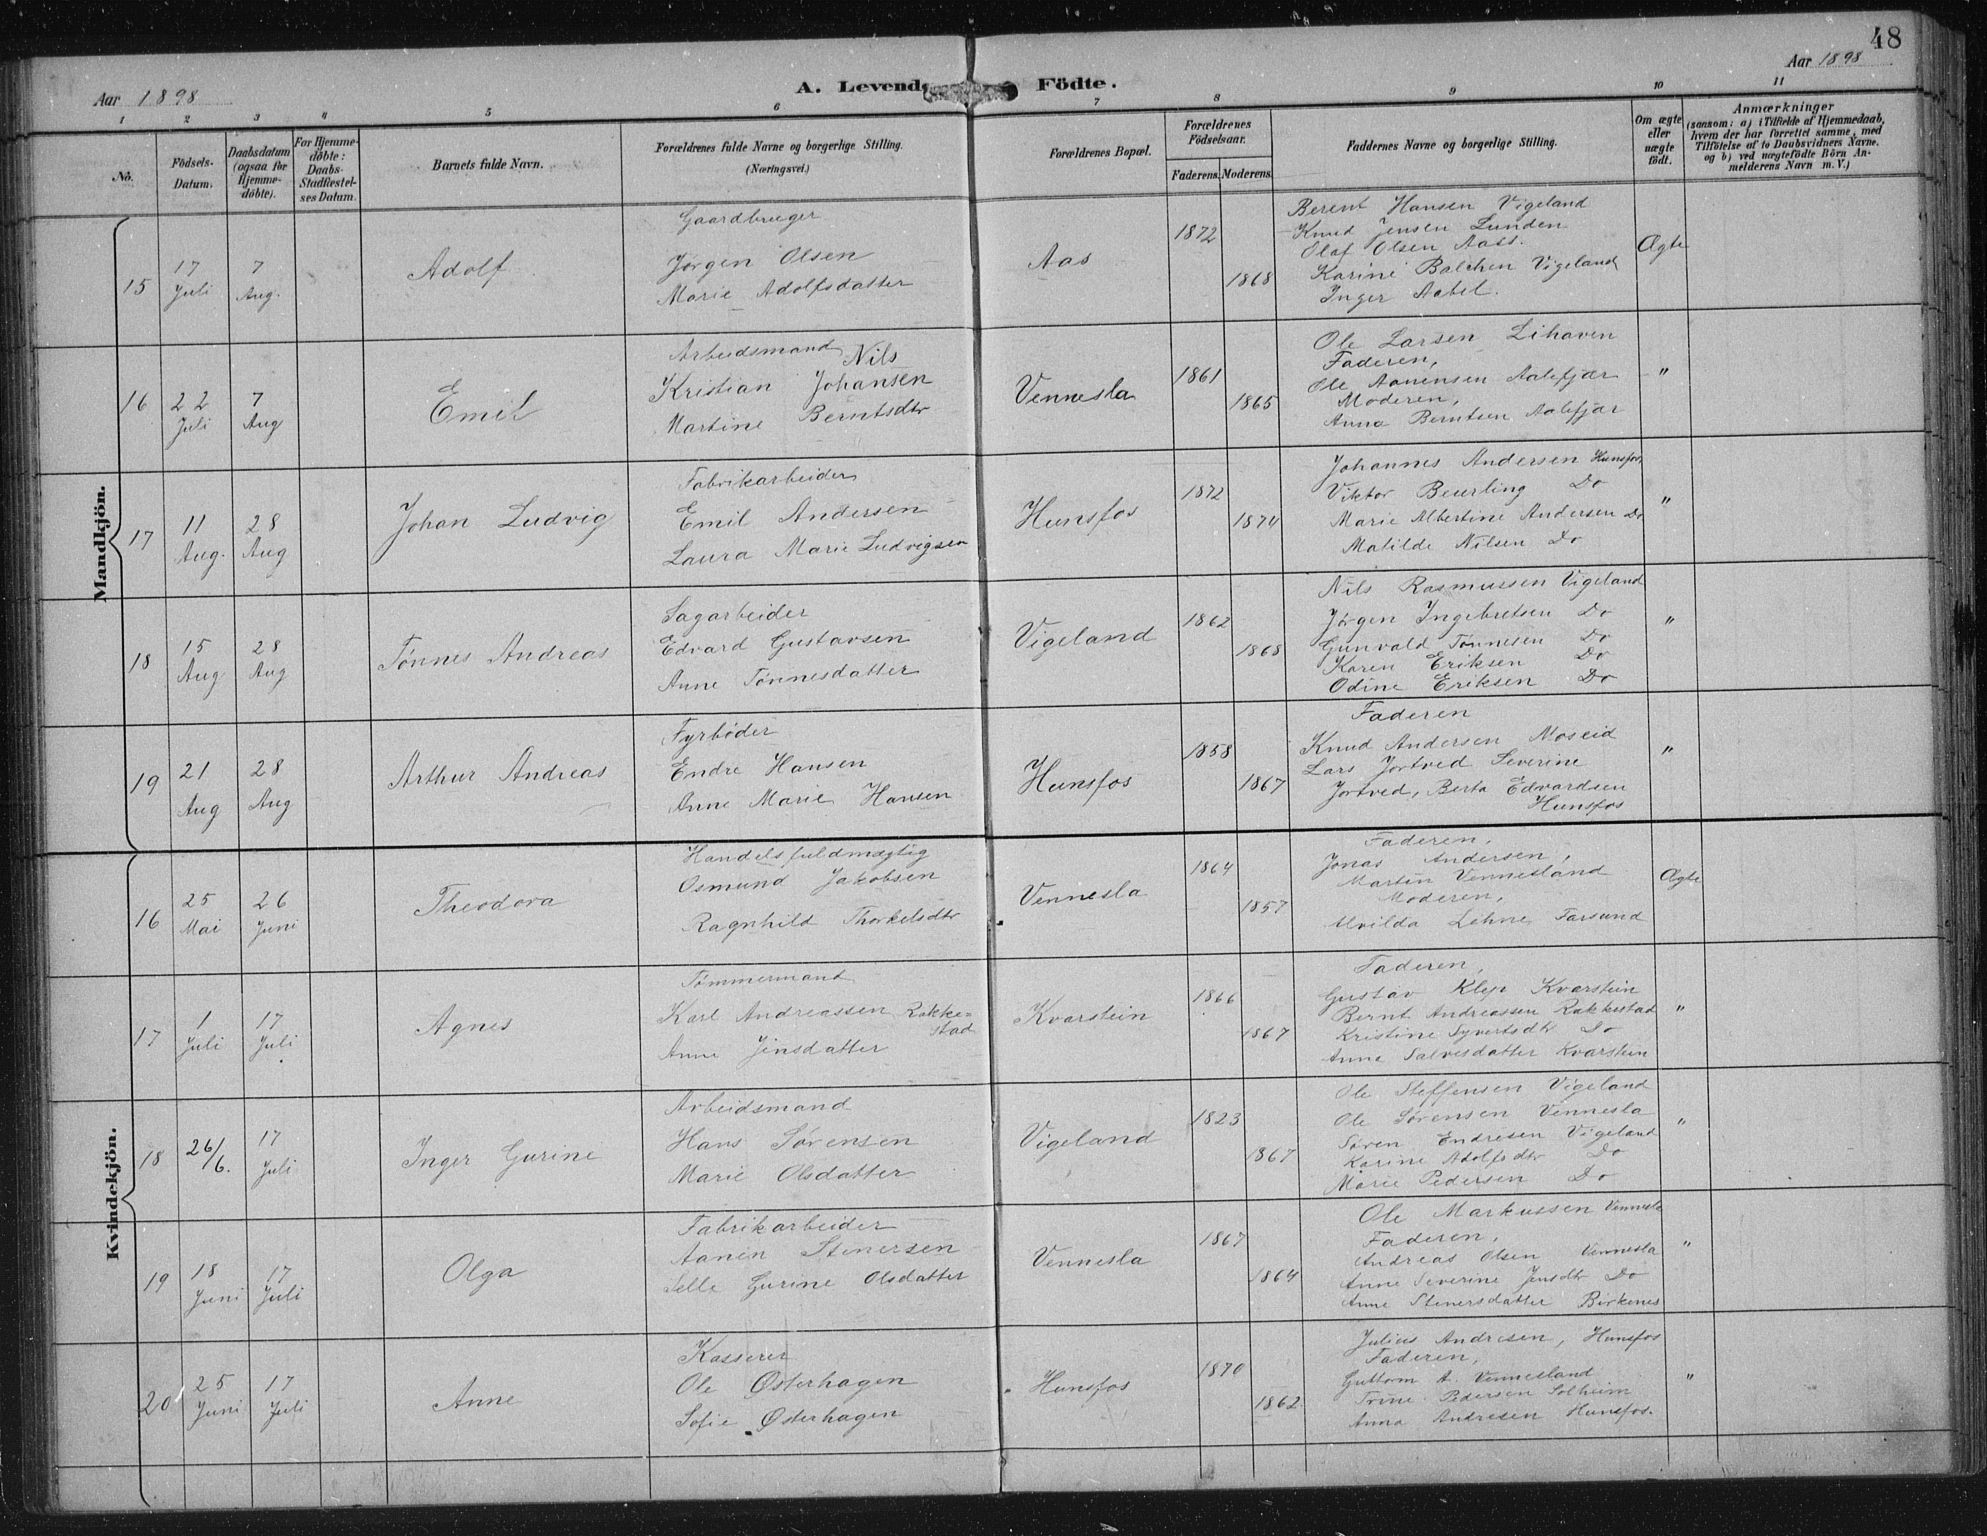 48
Aar 1898
A. Levende Födte.
Aar 1898
1 2 3 4 5 6 7 8 9 10 11
No.
Födsels-Datum.
Daabsdatum (ogsaa for Hjemme-döbte).
For Hjemme-döbte: Daabs-Stadfæstel-ses Datum.
Barnets fulde Navn.
Forældrenes fulde Navne og borgerlige Stilling. (Næringsvei.)
Forældrenes Bopæl.
Forældrenes Födselsaar.
Faderens. Moderens.
Faddernes Navne og borgerlige Stilling.
Om ægte eller uægte födt.
Anmærkninger
(saasom: a) i Tilfælde af Hjemmedaab, hvem der har forrettet samme, med Tilföielse af to Daabsvidners Navne, og b) ved uægtefödte Börn An-melderens Navn m. V.)
Mandkjön.
15
17 Juli
7 Aug.
Adolf
Gaardbruger
Jørgen Olsen
Marie Adolfsdatter
Aas
1872
1868
Berent Hansen Vigeland
Knud Jensen Lunden
Olaf Olsen Aass.
Karine Balchen Vigeland
Inger Aabel.
Ægte
16
22 Juli
7 Aug
Emil
Arbeidsmand Nils
Kristian Johansen
Martine Berntsdtr
Vennesla
1861
1865
Ole Larsen Lihaven
Faderen,
Ole Aanensen Aalefjær
Moderen,
Anna Berntsen Aalefjær
"
17
11 Aug.
28 Aug
Johan Ludvig
Fabrikarbeider
Emil Andersen
Laura Marie Ludvigsen
Hunsfos
1872
1874
Johannes Andersen Hunsfos,
Viktor Beurling Do
Marie Albertine Andersen Do
Matilde Nilsen Do
"
18
15 Aug
28 Aug
Tønnes Andreas
Sagarbeider
Edvard Gustavsen
Anne Tønnesdatter
Vigeland
1862
1868
Nils Rasmussen Vigeland
Jørgen Ingebretsen Do
Gunvald Tønnesen Do
Karen Eriksen Do
Odine Eriksen Do
"
19
21 Aug
28 Aug
Arthur Andreas
Fyrbøder
Endre Hansen
Anne Marie Hansen
Hunsfos
1858
1867
Faderen
Knud Andersen Moseid
Lars Jortved Severine
Jortved, Berta Edvardsen
Hunsfos
"
Kvindekjön.
16
25 Mai
26 Juni
Theodora
Handelsfuldmægtig
Osmund Jakobsen
Ragnhild Thorkelsdtr
Vennesla
1864
1857
Faderen,
Jonas Andersen,
Martin Vennesland
Moderen,
Alvilda Lehne Farsund
Ægte
17
1 Juli
17 Juli
Agnes
Tømmermand
Karl Andreassen Rakke=
stad
Anne Jensdatter
Kvarstein
1866
1867
Faderen,
Gustav Klep Kvarstein
Bernt Andreassen Rakkestad
Kristine Syvertsdtr Do
Anna Salvesdatter Kvarstein
"
18
26/6.
17 Juli
Inger Gurine
Arbeidsmand
Hans Sørensen
Marie Olsdatter
Vigeland
1823
1867
Ole Steffensen Vigeland
Ole Sørensen Vennesla
Søren Endresen Vigeland
Karine Adolfsdtr Do
Marie Pedersen Do
"
19
18 Juni
17 Juli
Olga
Fabrikarbeider
Aanen Stenersen
Selle Gurine Olsdatter
Vennesla
1867
1864
Ole Markussen Vennesla
Faderen,
Andreas Olsen Vennesla
Anne Severine Jensdtr Do
Anne Stenersdatter Birkenes
"
20
25 Juni
17 Juli
Anne
Kasserer
Ole Østerhagen
Sofie Østerhagen
Hunsfos
1870
1862
Julius Andresen, Hunsfos
Faderen,
Guttorm A. Vennesland
Trine Pedersen Solheim
Anna Andresen Hunsfos.
"